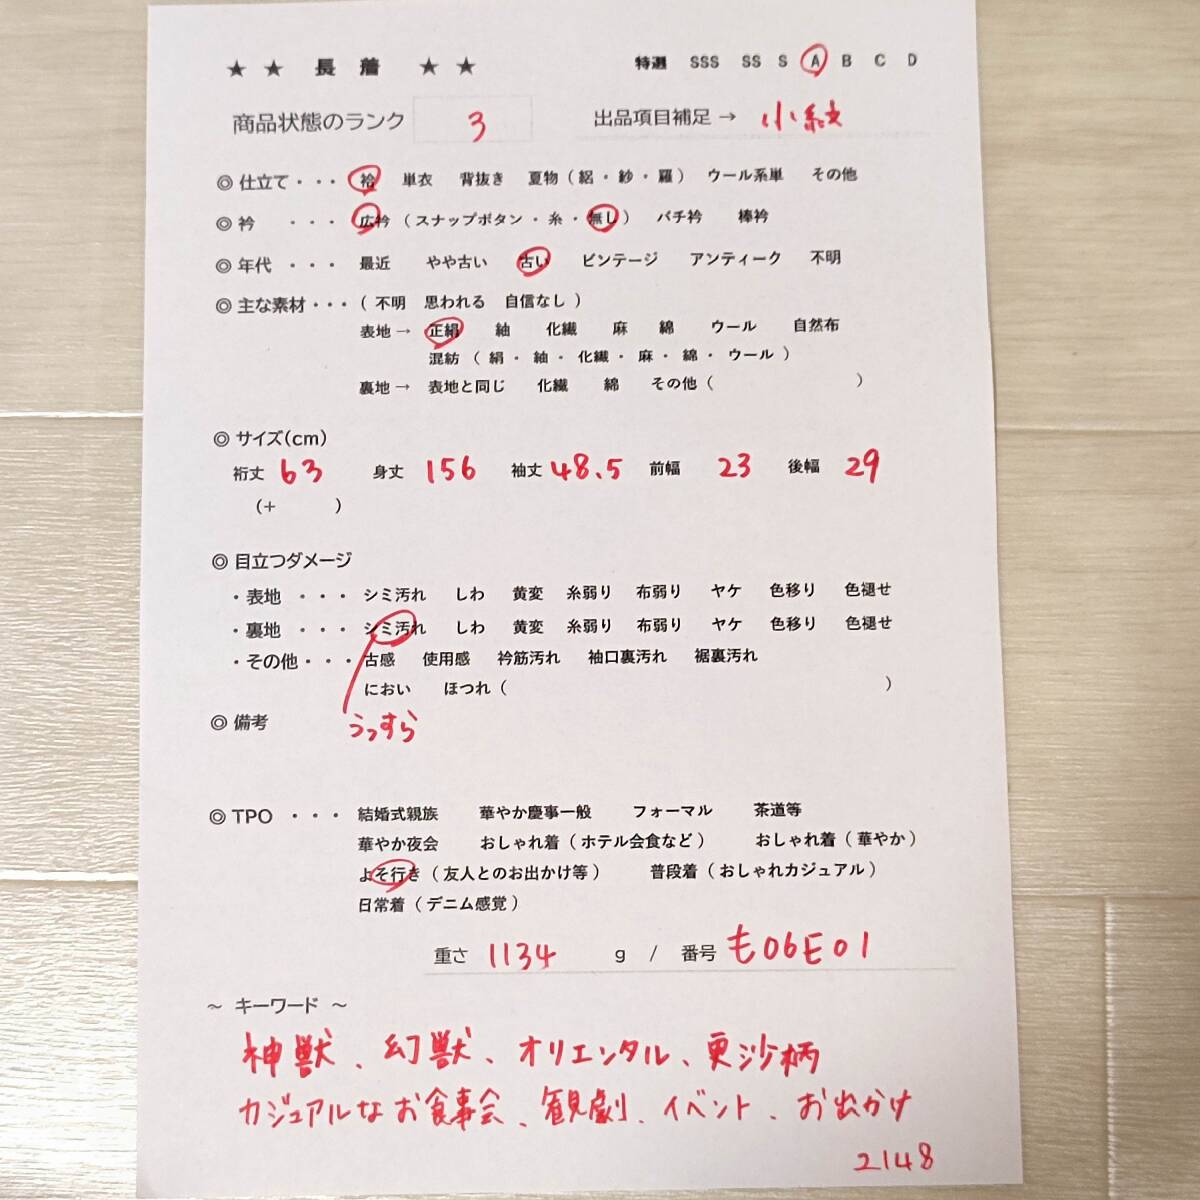 ★ ★ 長 着 ★ ★ 特選 SSS SS S A B C D
商品状態のランク 3 出品項目補足 → 小紋
◎ 仕立て・・・ 袷 単衣 背抜き 夏物 ( 絽 ・ 紗 ・ 羅 ) ウール系単 その他
◎ 衿 ・・・ 広衿 ( スナップボタン ・ 糸 ・ 無し ) バチ衿 棒衿
◎ 年代 ・・・ 最近 やや古い 古い ビンテージ アンティーク 不明
◎ 主な素材・・・ ( 不明 思われる 自信なし )
表地 → 正絹 紬 化繊 麻 綿 ウール 自然布
混紡 ( 絹 ・ 紬 ・ 化繊 ・ 麻 ・ 綿 ・ ウール )
裏地 → 表地と同じ 化繊 綿 その他 ( )
◎ サイズ(cm)
裄丈 63 身丈 156 袖丈 48.5 前幅 23 後幅 29
(+ )
◎ 目立つダメージ
・表地 ・・・ シミ汚れ しわ 黄変 糸弱り 布弱り ヤケ 色移り 色褪せ
・裏地 ・・・ シミ汚れ しわ 黄変 糸弱り 布弱り ヤケ 色移り 色褪せ
・その他・・・ 古感 使用感 衿筋汚れ 袖口裏汚れ 裾裏汚れ
におい ほつれ ( )
◎ 備考 うっすら
◎ TPO ・・・ 結婚式親族 華やか慶事一般 フォーマル 茶道等
華やか夜会 おしゃれ着 ( ホテル会食など ) おしゃれ着 ( 華やか )
よそ行き ( 友人とのお出かけ等 ) 普段着 ( おしゃれカジュアル )
日常着 ( デニム感覚 )
重さ 1134 g / 番号 も06E01
～ キーワード ～
神獣、幻獣、オリエンタル、更沙柄
カジュアルなお食事会、観劇、イベント、お出かけ
2148